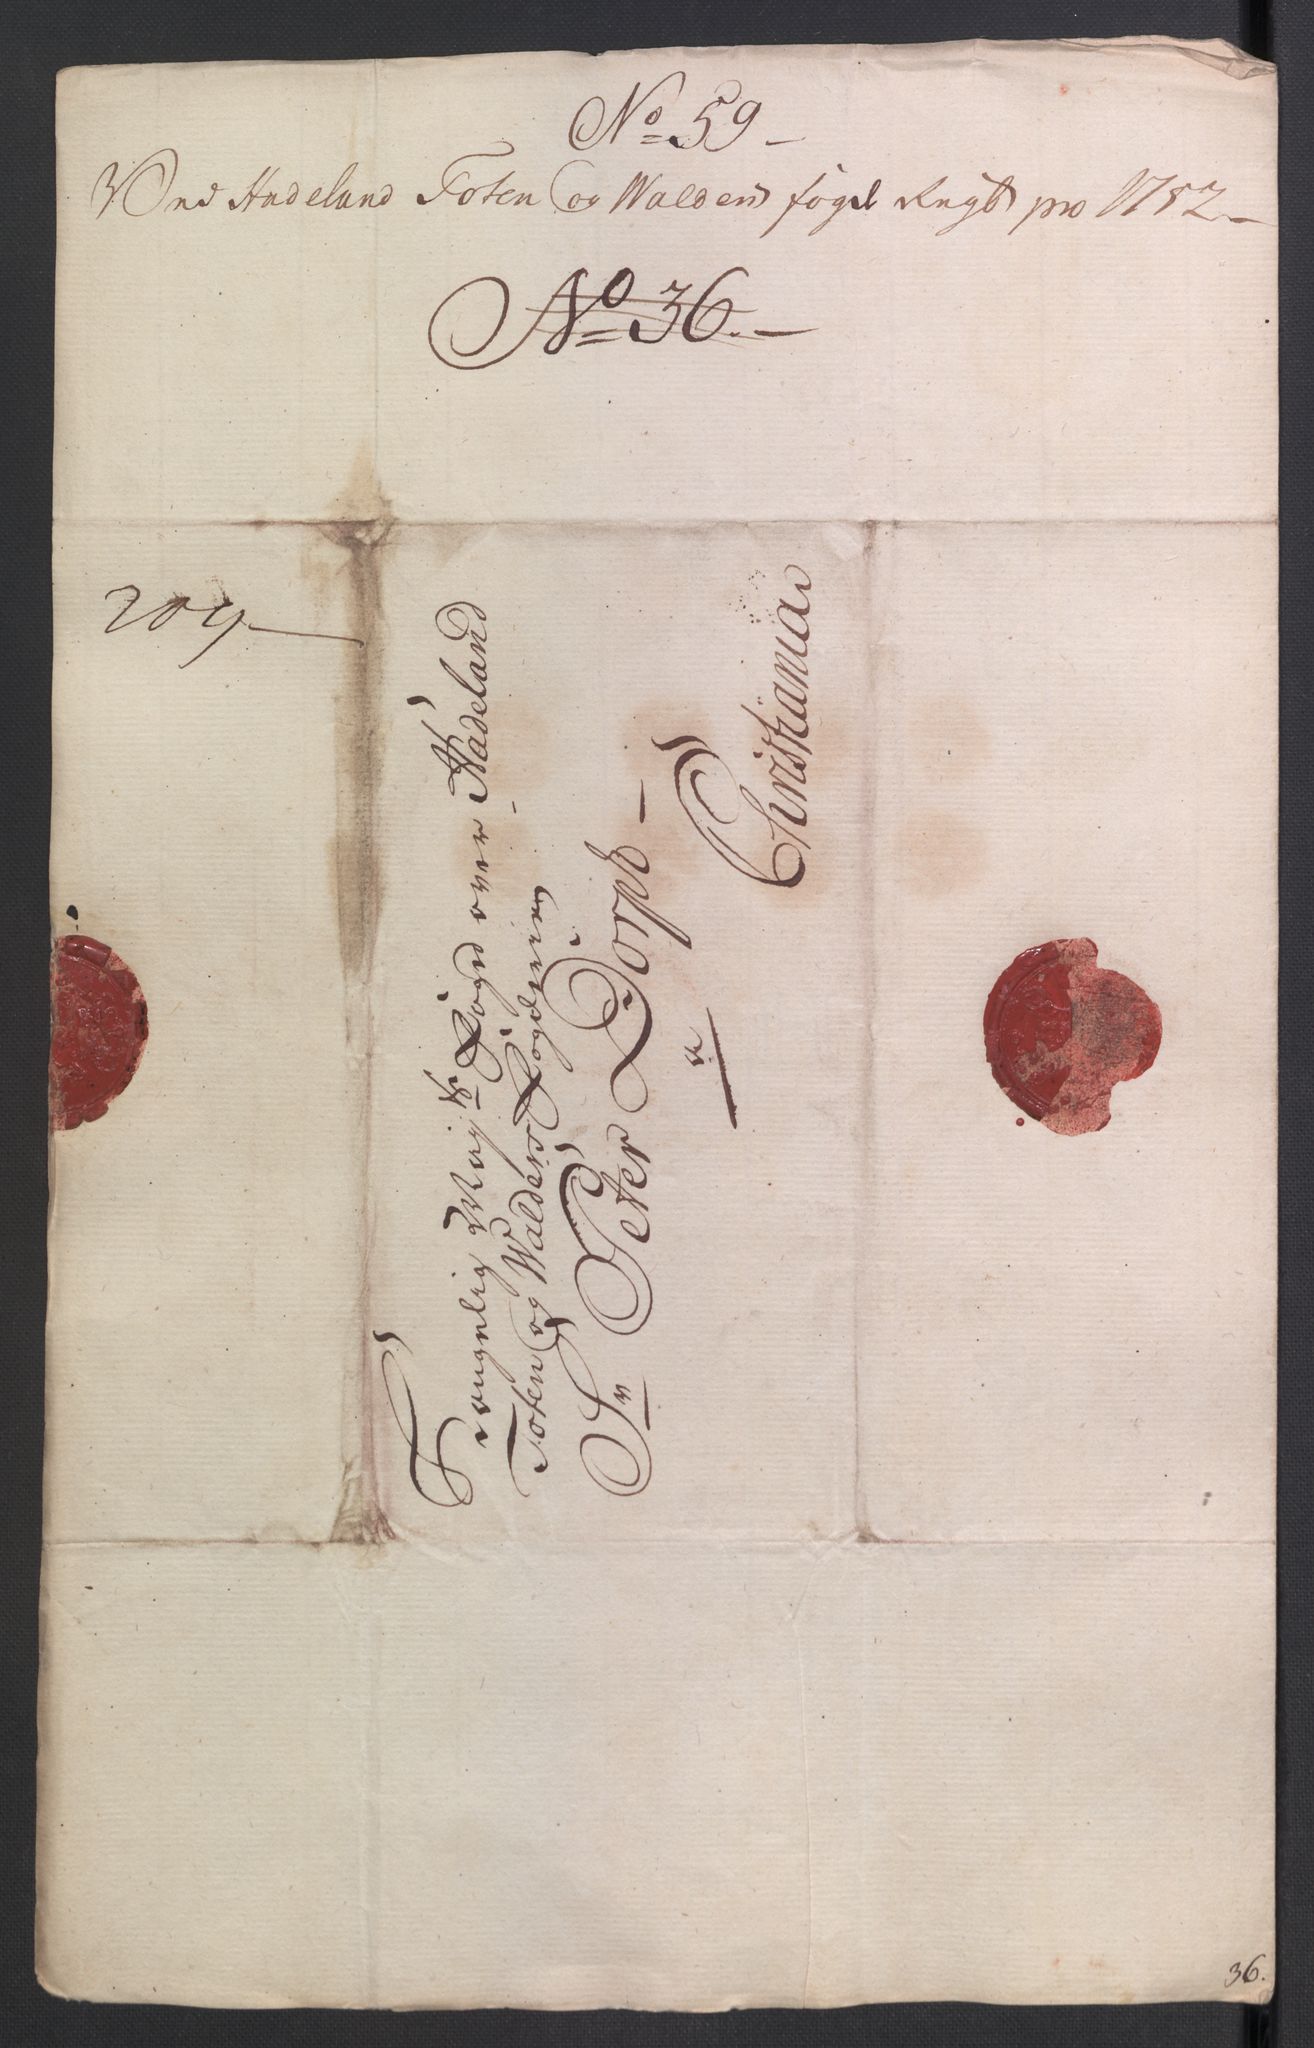 No 59
Ved Hadeland Toten og Walders fogd Regnsk pro 1752
No 36.
204
Kongelig Mayts Foged over Hadeland
Toten og Walders Fogderier
Sr Peter Dorph
a
Christiania
36.